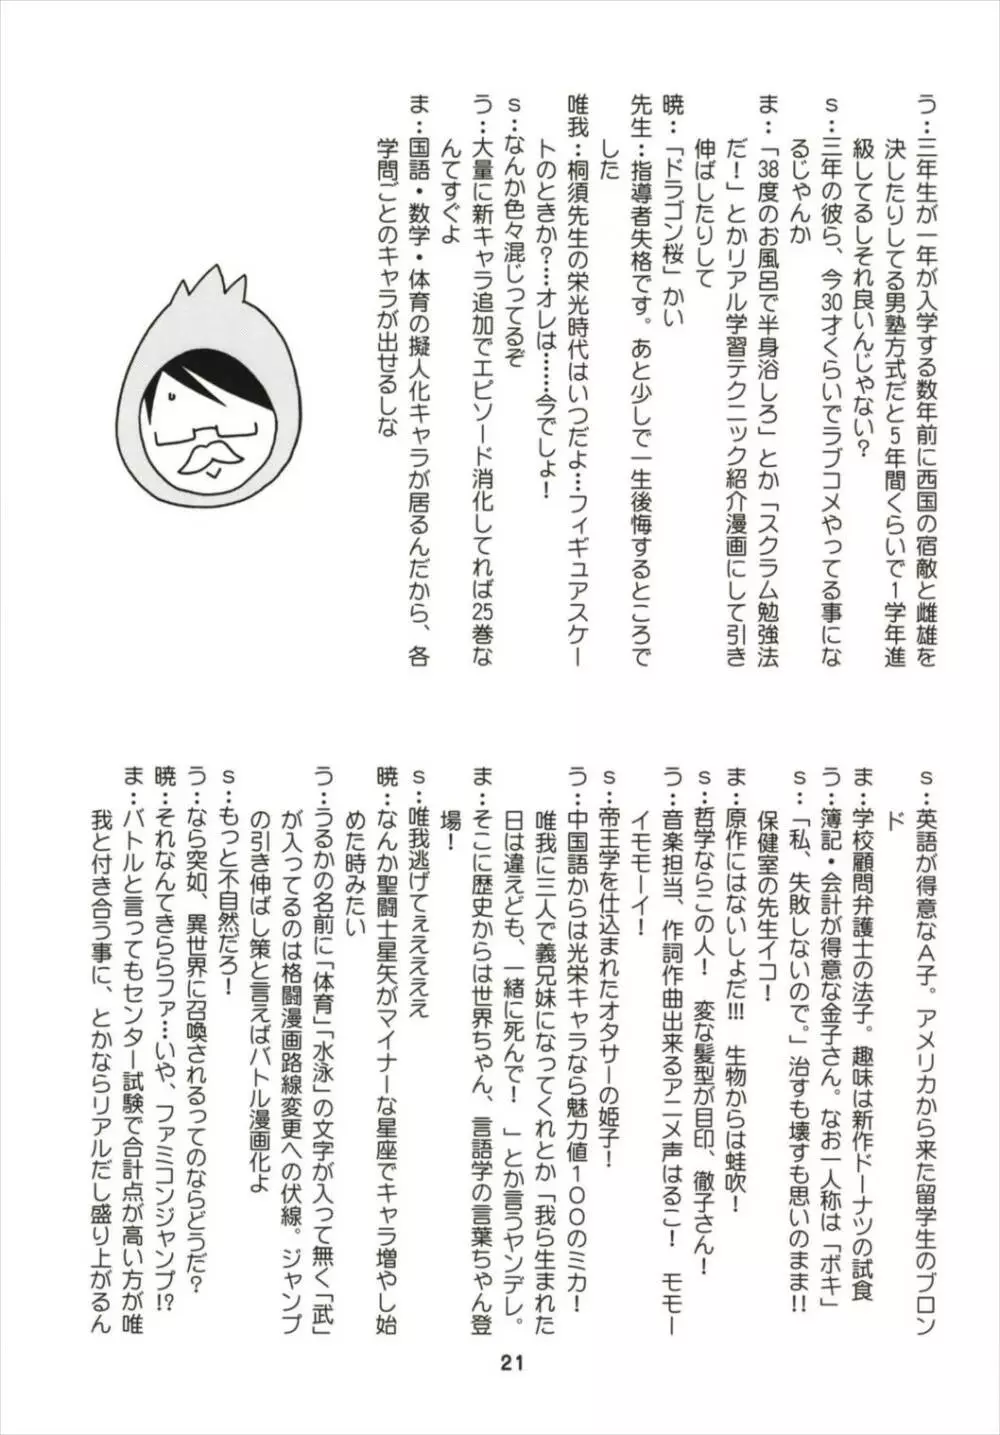 う：三年生が一年が入学する数年前に西国の宿敵と雌雄を
決したりしてる男塾方式だと5年間くらいで1学年進
級してるしそれ良いんじゃない？
s：三年の彼ら、今30才くらいでラブコメやってる事にな
るじゃんか
ま：「38度のお風呂で半身浴しろ」とか「スクラム勉強法
だ！」とかリアル学習テクニック紹介漫画にして引き
伸ばしたりして
暁：「ドラゴン桜」かい
先生：指導者失格です。あと少しで一生後悔するところで
した
唯我：桐須先生の栄光時代はいつだよ…フィギュアスケー
トのときか？…オレは……今でしょ！
s：なんか色々混じってるぞ
う：大量に新キャラ追加でエピソード消化してれば25巻な
んてすぐよ
ま：国語・数学・体育の擬人化キャラが居るんだから、各
学問ごとのキャラが出せるしな
s：英語が得意なA子。アメリカから来た留学生のブロン
ド
ま：学校顧問弁護士の法子。趣味は新作ドーナツの試食
う：簿記・会計が得意な金子さん。なお一人称は「ボキ」
s：「私、失敗しないので。」治すも壊すも思いのまま!!
保健室の先生イコ！
ま：原作にはないしょだ!!!　生物からは蛙吹！
s：哲学ならこの人！　変な髪型が目印、徹子さん！
う：音楽担当、作詞作曲出来るアニメ声はるこ！　モモー
イモモーイ！
s：帝王学を仕込まれたオタサーの姫子！
う：中国語からは光栄キャラなら魅力値100のミカ！
唯我に三人で義兄妹になってくれとか「我ら生まれた
日は違えども、一緒に死んで！　」とか言うヤンデレ。
ま：そこに歴史からは世界ちゃん、言語学の言葉ちゃん登
場！
s：唯我逃げてえええええ
暁：なんか聖闘士星矢がマイナーな星座でキャラ増やし始
めた時みたい
う：うるかの名前に「体育」「水泳」の文字が入って無く「武」
が入ってるのは格闘漫画路線変更への伏線。ジャンプ
の引き伸ばし策と言えばバトル漫画化よ
s：もっと不自然だろ！
う：なら突如、異世界に召喚されるってのならどうだ？
暁：それなんてきららファ…いや、ファミコンジャンプ!?
ま：バトルと言ってもセンター試験で合計点が高い方が唯
我と付き合う事に、とかならリアルだし盛り上がるん
21